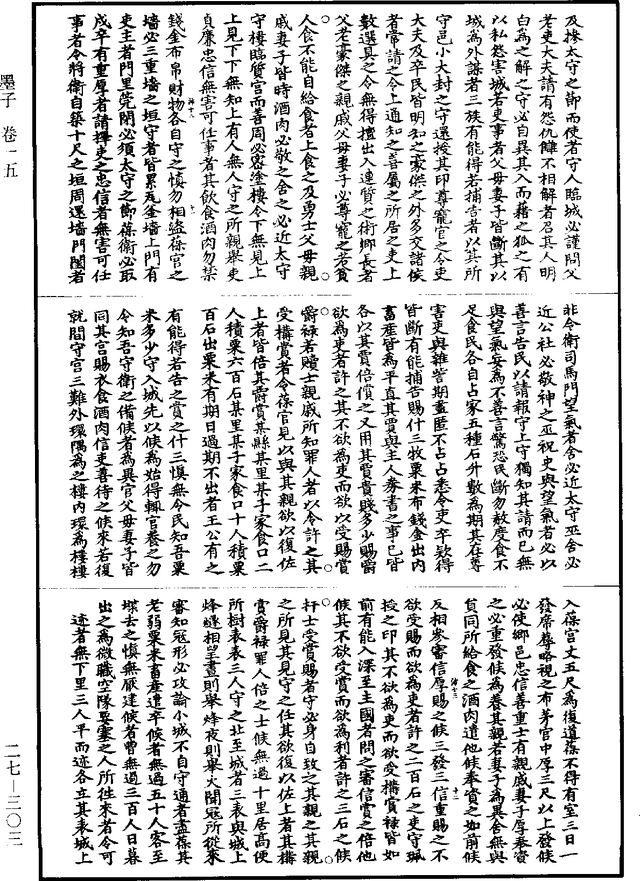 及掾太守之節而使者守人臨城必謹問父
老吏大夫請有怨仇讎不相解者召其人明
白為之解之守必自異其人而藉之孤之有
以私怨害城若吏事者父母妻子皆斷其以
城為外謀者三族有能得若捕告者以其所
守邑小大封之守還授其印尊寵官之令吏
大夫及卒民皆明知之豪傑之外多交諸侯
者常請之令上通知之善屬之所居之吏上
數選具之令無得擅出入連質之術鄉長者
父老豪傑之親戚父母妻子必尊寵之若貧
人食不能自給食者上食之及勇士父母親
戚妻子皆時酒肉必敬之舍之必近太守
守樓臨質宮而善周必密塗樓令下無見上
上見下下無知上有人無人守之所親舉吏
貞廉忠信無害可任事者其飲食酒肉勿禁
錢金布帛財物各自守之慎勿相盜葆宮之
墻必三重墻之垣守者皆累瓦釜墻上門有
吏主者門里筦閉必須太守之節葆衛必取
戍卒有重厚者請擇吏之忠信者無害可任
事者令將衛自築十尺之垣周還墻門閨者
非令衛司馬門望氣者舍必近太守巫舍必
近公社必敬神之巫祝史與望氣者必以
善言告民以請報守上守獨知其請而已無
與望氣妄為不善言驚恐民斷勿赦度食不
足食民各自占家五種石升數為期其在蓴
害吏與雜訾期盡匿不占占悉令吏卒得
皆斷有能捕告賜什三牧粟米布錢金出內
畜產皆為平直其賈與主人券書之事已皆
各以其賈倍償之又用其賈貴賤多少賜爵
欲為吏者許之其不欲為吏而欲以受賜賞
爵祿若贖士親戚所知罪人者以令許之其
受構賞者令葆宮見以與其親欲以復佐
上者皆倍其爵賞某縣某里某子家食口二
人積粟六百石某里某子家食口十人積粟
百石出粟米有期日過期不出者王公有之
有能得若告之賞之什三慎無令民知吾粟
米多少守入城先以候為始得輒宮養之勿
令知吾守衛之備候者為異宮父母妻子皆
同其宮賜衣食酒肉信吏善待之候來若復
就閒守宮三難外環隅為之樓內環為樓樓
入葆宮丈五尺為復道葆不得有室三日一
發席蓐略視之布茅宮中厚三尺以上發候
必使鄉邑忠信善重士有親戚妻子厚奉資
之必重發候為養其親若妻子為異舍無與
員同所給食之酒肉遣他候奉資之如前候
反相參審信厚賜之候三發三信重賜之不
欲受賜而欲為吏者許之二百石之吏守珮
授之印其不欲為吏而欲受構賞祿皆如
前有能入深至主國者問之審信賞之倍他
候其不欲受賞而欲為利者許之三石之候
扞士受賞賜者守必身自致之其親之其親
之所見其見守之任其欲復以佐上者其構
賞爵祿罪人倍之士候無過十里居高便
所樹表表三人守之比至城者三表與城上
烽燧相望晝則舉烽夜則舉火聞寇所從來
審知寇形必攻論小城不自守通者盡葆其
老弱粟米畜產遣卒候者無過五十人客至
堞去之慎無厭建候者曹無過三百人日暮
出之為微職空隊要塞之人所往來者令可
迹者無下里三人平而迹各立其表城上
墨子 卷一五
二七—三〇三